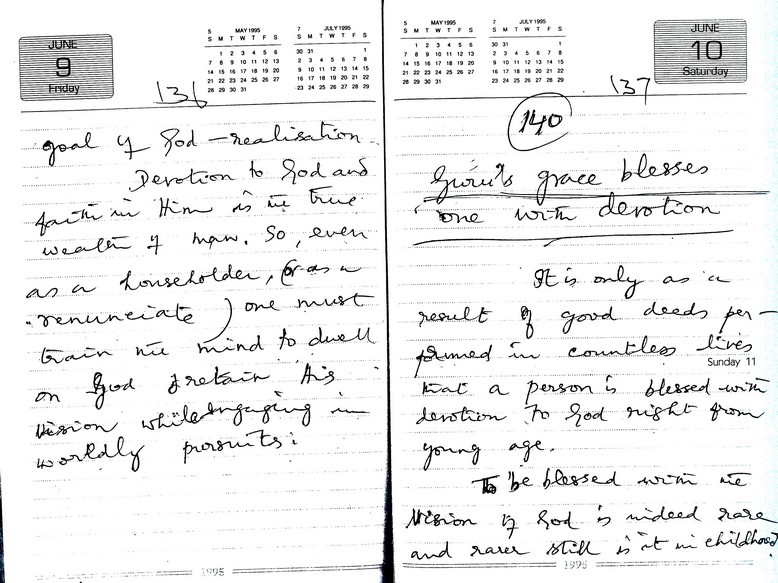 JUNE
9
Friday
5 MAY 1995
S M T W T F S
1 2 3 4 5 6
7 8 9 10 11 12 13
14 15 16 17 18 19 20
21 22 23 24 25 26 27
28 29 30 31
7 JULY 1995
S M T W T F S
30 31 1
2 3 4 5 6 7 8
9 10 11 12 13 14 15
16 17 18 19 20 21 22
23 24 25 26 27 28 29
136
goal of God-realisation.
Devotion to God and
faith in Him is the true
wealth of man. So, even
as a householder, (or as a
renunciate) one must
train the mind to dwell
on God & retain His
vision while engaging in
worldly pursuits.
1995
5 MAY 1995
S M T W T F S
1 2 3 4 5 6
7 8 9 10 11 12 13
14 15 16 17 18 19 20
21 22 23 24 25 26 27
28 29 30 31
7 JULY 1995
S M T W T F S
30 31 1
2 3 4 5 6 7 8
9 10 11 12 13 14 15
16 17 18 19 20 21 22
23 24 25 26 27 28 29
JUNE
10
Saturday
137
140
Guru's grace blesses
one with devotion
It is only as a
result of good deeds per-
formed in countless lives
Sunday 11
that a person is blessed with
devotion to God right from
young age.
To be blessed with the
vision of God is indeed rare
and rarer still is it in childhood
1995